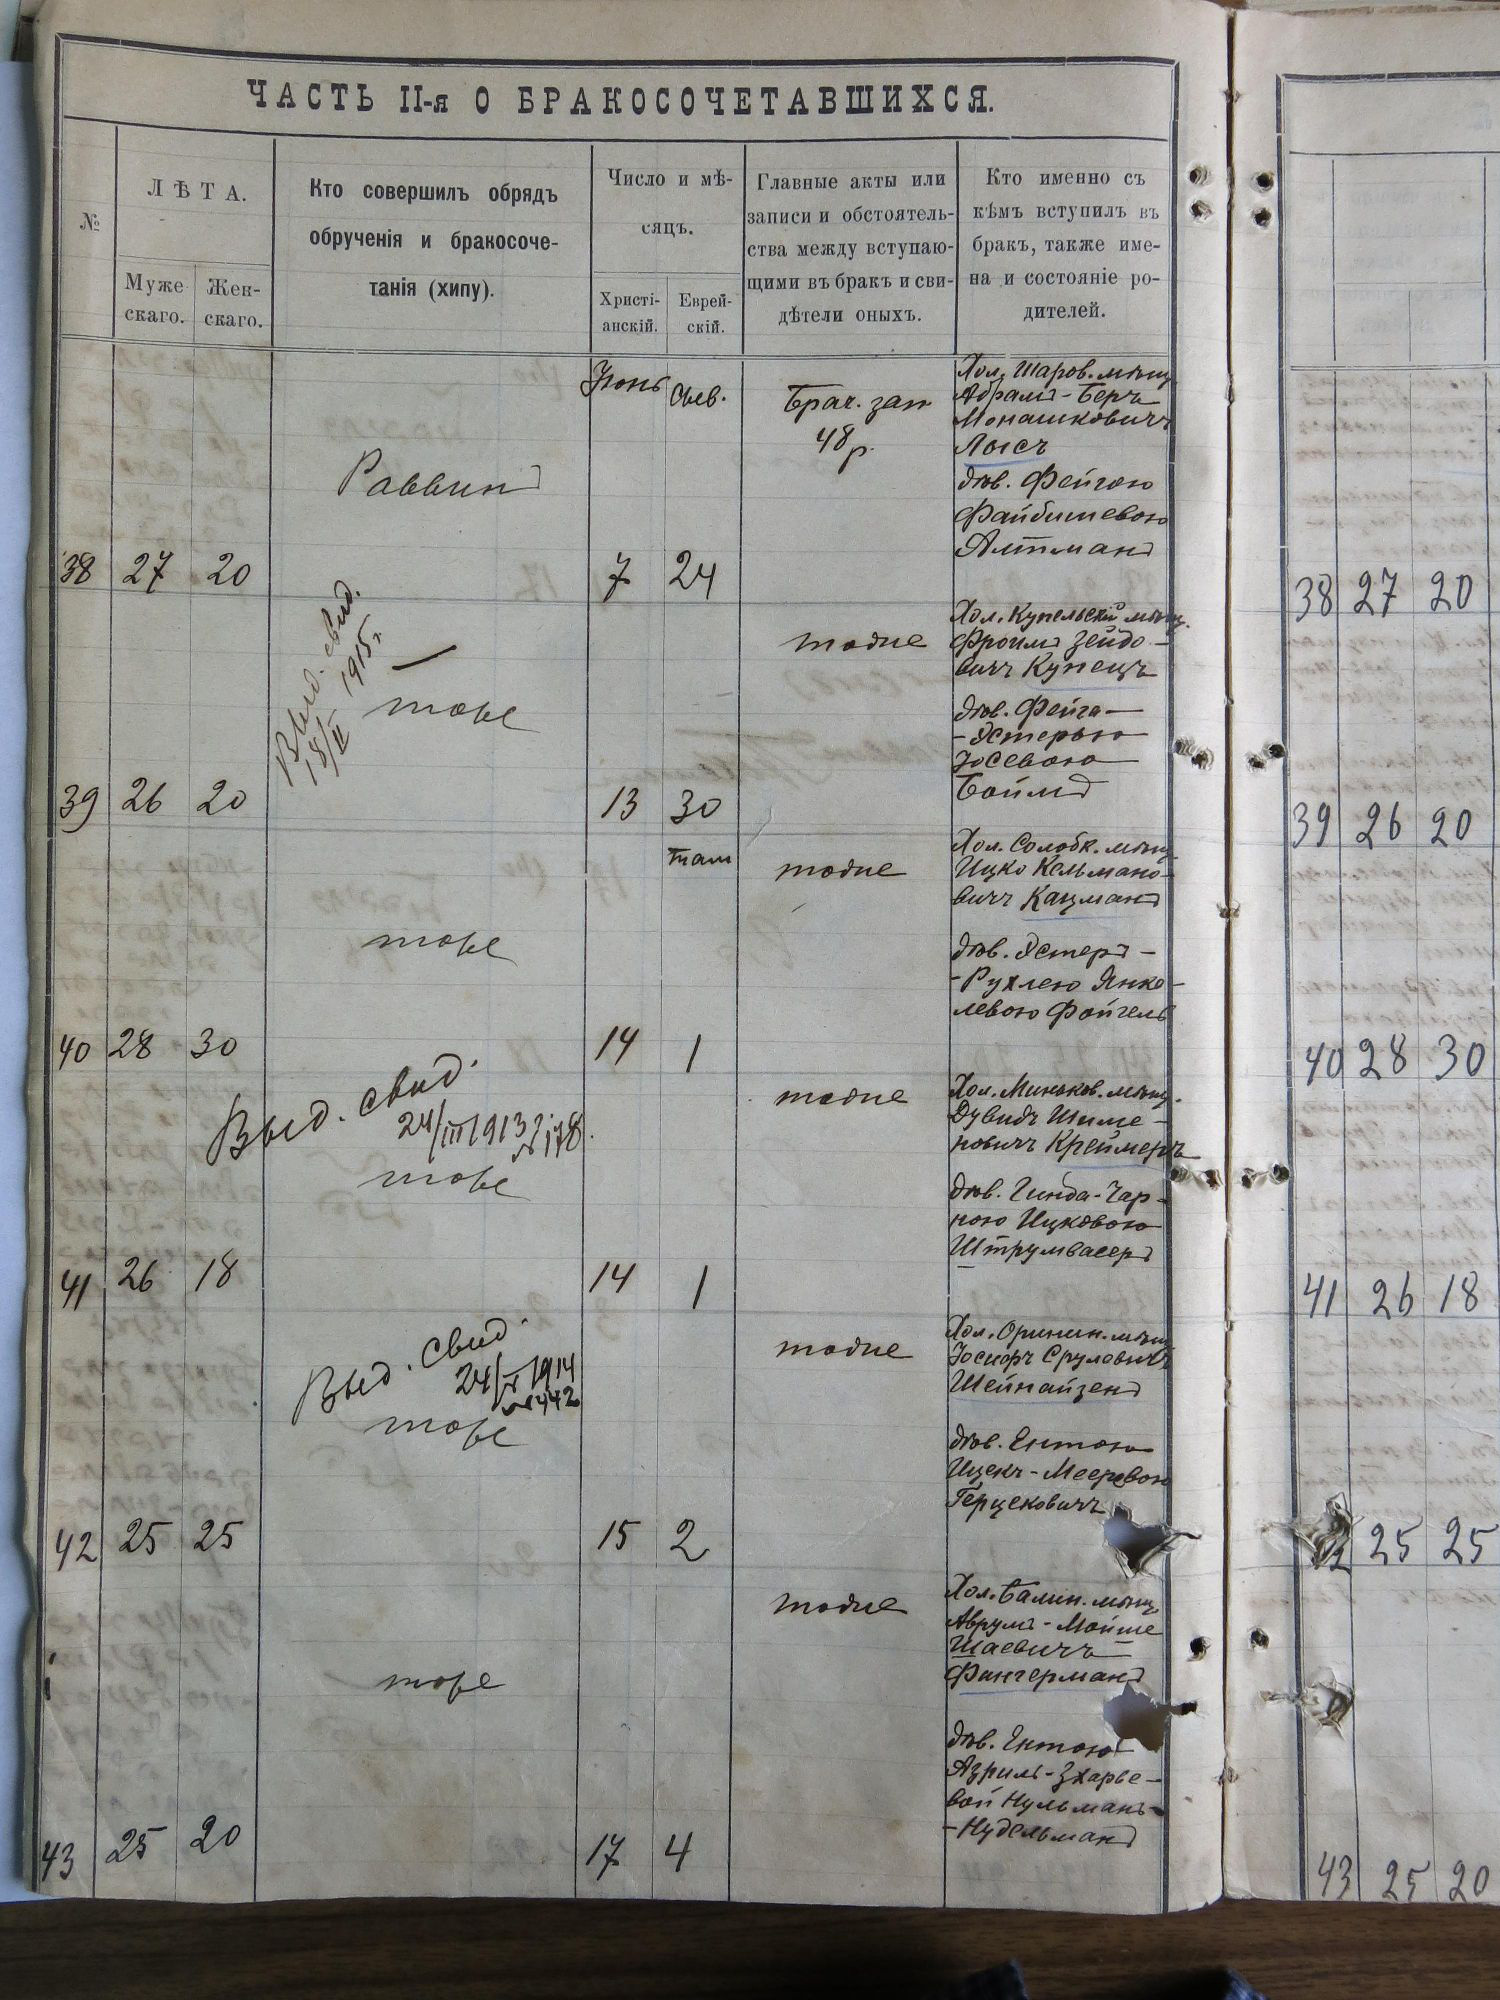 ЧАСТЬ II-я О БРАКОСОЧЕТАВШИХСЯ.
№
ЛѢТА.
Муже
скаго.
Жен-
скаго.
Кто совершилъ обрядъ
обрученія и бракосоче-
танія (хипу).
Число и мѣ-
сяцъ.
Христі-
анскій.
Еврей-
скій.
Главные акты или
записи и обстоятель-
ства между вступаю-
щими въ бракъ и сви-
дѣтели оныхъ.
Кто именно съ
кѣмъ вступилъ въ
бракъ, также име-
на и состояніе ро-
дителей.
38 27 20
Раввинъ
Іюнь
Сыв.
7 24
Брач. зап
48 р.
Хол. Шаров. мѣщ.
Абрамъ-Беръ
Монашковичъ
Лысъ
дѣв. Фейгою
Файбишевою
Алтманъ
39 26 20
Выд. свид.
18/II 1915 г.
тоже
13 30
тоже
Хол. Купельскій мѣщ.
Фроимъ Зейдо-
вичъ Купецъ
дѣв. Фейга-
-Эстерью
Іосевою
Боймъ
40 28 30
тоже
Там
14 1
тоже
Хол. Солобк. мѣщ.
Ицко Кельмано-
вичъ Кацманъ
дѣв. Эстеръ-
-Рухлею Янке-
левою Фойгель
41 26 18
Выд. свид.
24/III 1913 г.
№ 178.
тоже
14 1
тоже
Хол. Миньков. мѣщ.
Дувидъ Шиме-
новичъ Креймеръ
дѣв. Гинда-Чар-
ною Ицковою
Штрумвасеръ
42 25 25
Выд. свид.
24/X 1914
№ 442
тоже
15 2
тоже
Хол. Оринин. мѣщ.
Іосифъ Срулевичъ
Шейнайзенъ
дѣв. Ентою
Ицекъ-Меерывою
Герцековичъ
43 25 20
тоже
17 4
тоже
Хол. Балин. мѣщ.
Аврумъ-Мойше
Шаевичъ
Фингерманъ
дѣв. Ентою
Азриль-Зхарье-
вой Нульманъ-
-Нудельманъ
38 27 20
39 26 20
40 28 30
41 26 18
25 25
43 25 20